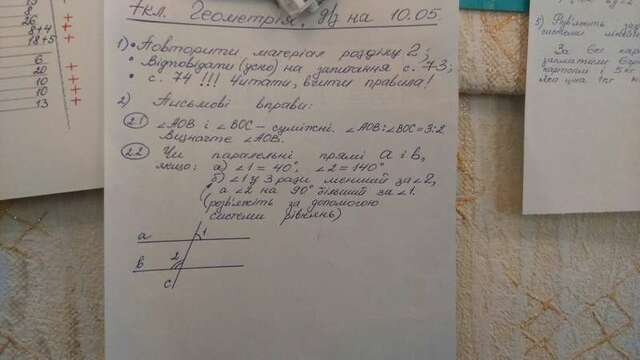 8
26
8+4
18+5
6
20
10
10
13
7кл. Геометрія д/з на 10.05.
1) • Повторити матеріал розділу 2;
• Відповідати (усно) на запитання с. 73;
• с. 74 !!! Читати, вчити правила!
2) Письмові вправи:
2.1 ∠AOB і ∠BOC – суміжні. ∠AOB:∠BOC=3:2
Визначте ∠AOB.
2.2 Чи паралельні прямі a і b,
якщо: а) ∠1 = 40°, ∠2 = 140°
б) ∠1 у 3 рази менший за ∠2,
а ∠2 на 90° більший за ∠1.
(розв'яжіть за допомогою
системи рівнянь)
a
1
2
b
c
3) Розв'яжіть
системи
За 6кг
заплатили
картоплі і 5 кг
1кг